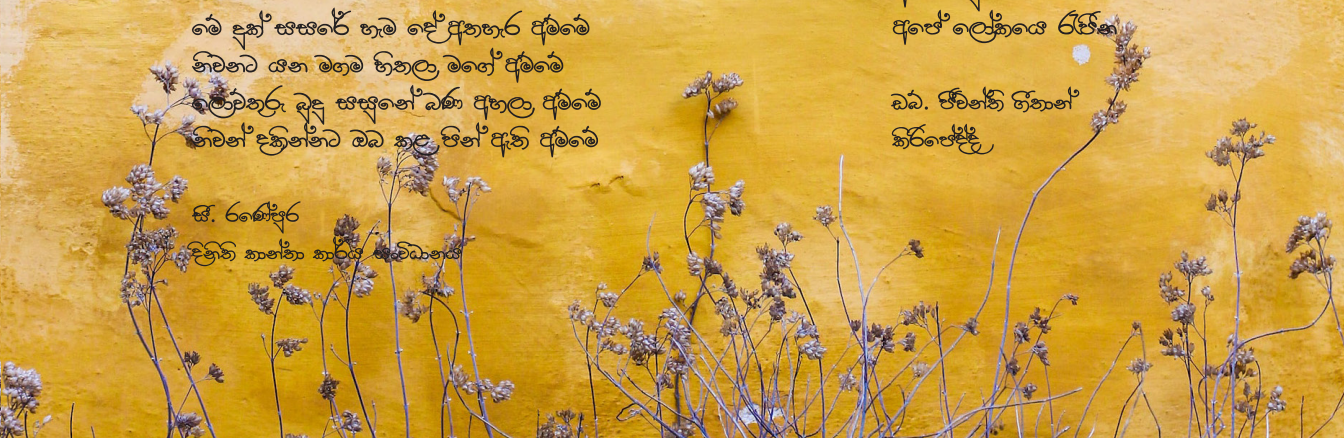 මේ දුක් සසරේ හැම දේ අතහැර අම්මේ
නිවනට යන මගම හිතලා මගේ අම්මේ
ලොව්තුරු බුදු සසුනේ බණ අහලා අම්මේ
නිවන් දකින්නට ඔබ කළ පින් ඇති අම්මේ
සී. රණේපුර
දිනිති කාන්තා කාර්ය සංවිධානය
අපේ ලෝකයෙ රැජින
ඩබ්. ජීවන්ති ගීතාන්
කිරිපේද්ද